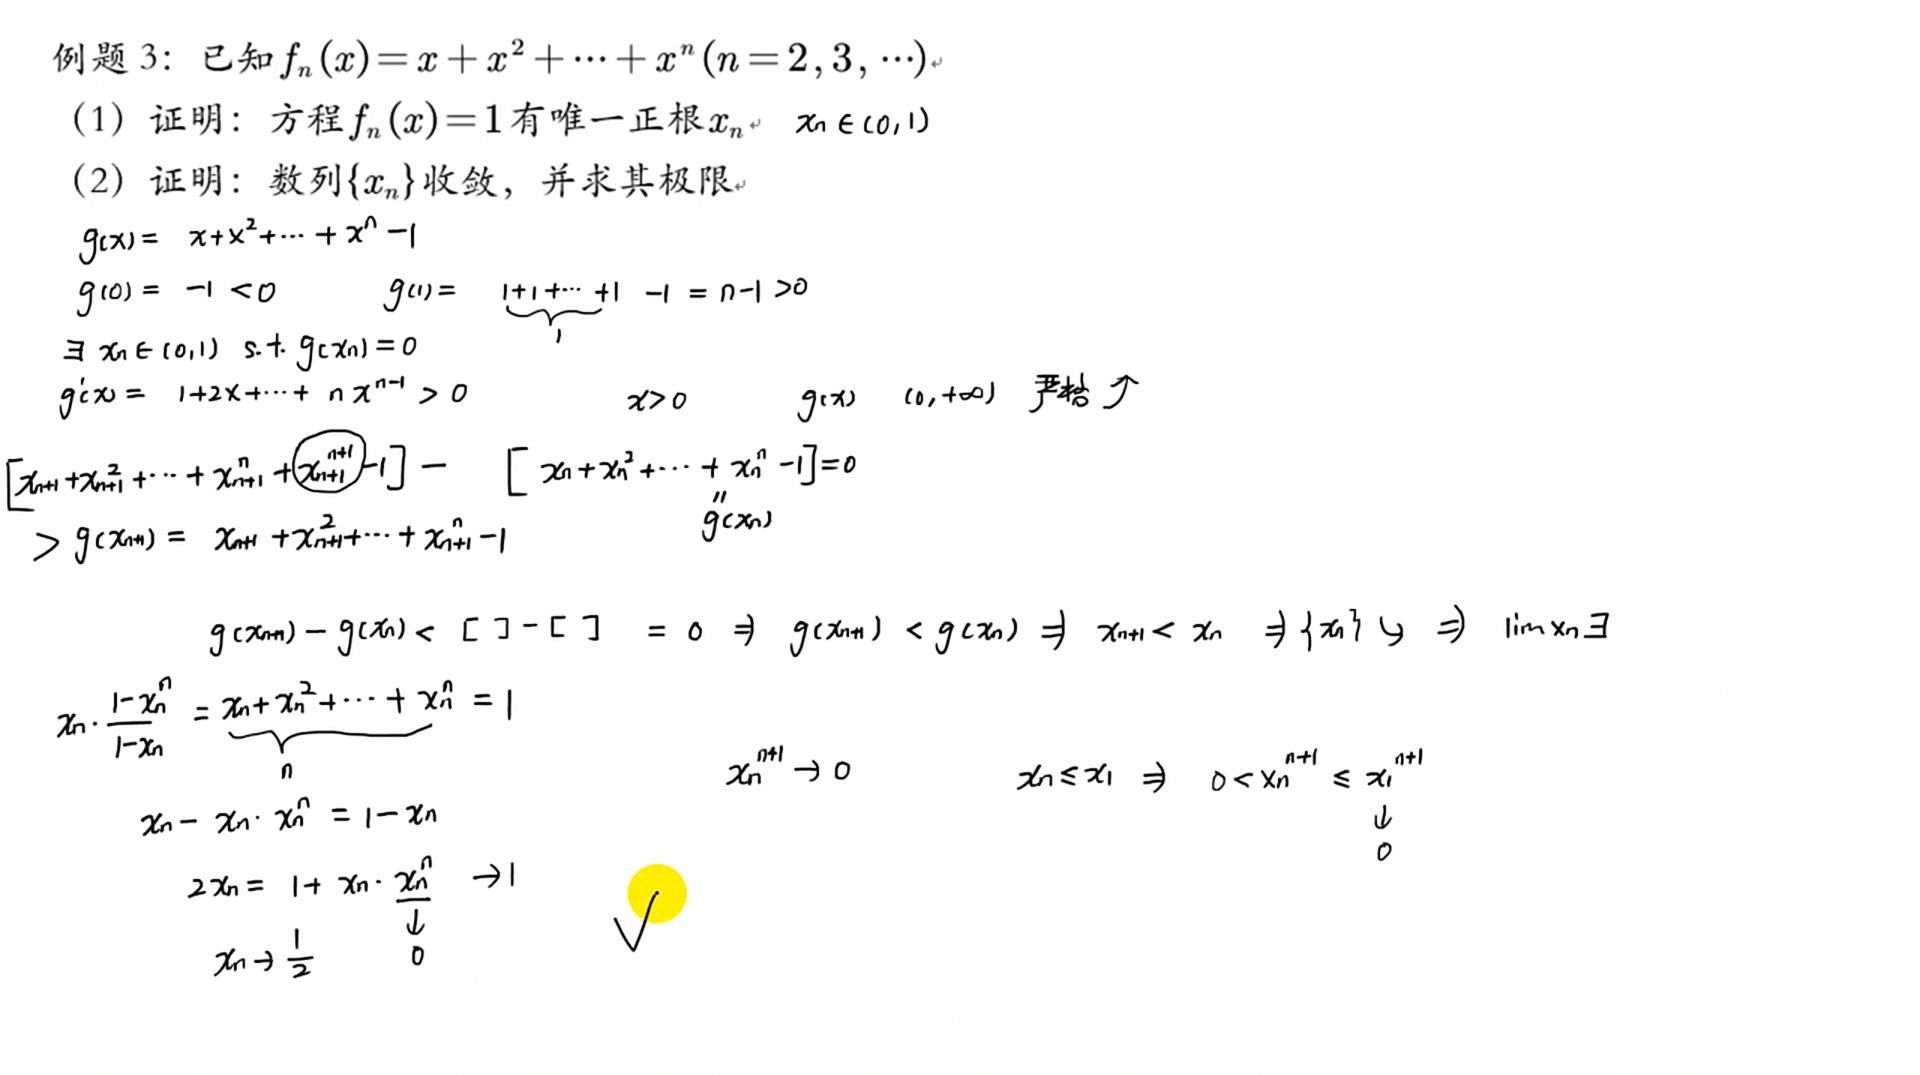 例题 3：已知 fₙ(x)=x+x²+⋯+xⁿ(n=2,3,⋯)
（1）证明：方程 fₙ(x)=1 有唯一正根 xₙ xₙ∈(0,1)
（2）证明：数列{xₙ}收敛，并求其极限
g(x)= x+x²+⋯+xⁿ-1
g(0)= -1<0 g(1)= 1+1+⋯+1 -1 = n-1>0
1
∃ xₙ∈(0,1) s.t. g(xₙ)=0
g'(x)= 1+2x+⋯+nxⁿ⁻¹>0 x>0 g(x) (0,+∞) 严格↑
[xₙ₊₁+xₙ₊₁²+⋯+xₙ₊₁ⁿ+xₙ₊₁ⁿ⁺¹-1] - [xₙ+xₙ²+⋯+xₙⁿ-1]=0
" g(xₙ)
> g(xₙ₊₁)= xₙ₊₁+xₙ₊₁²+⋯+xₙ₊₁ⁿ-1
g(xₙ₊₁)-g(xₙ)< [ ]-[ ] = 0 ⇒ g(xₙ₊₁)<g(xₙ) ⇒ xₙ₊₁<xₙ ⇒ {xₙ}↘ ⇒ lim xₙ ∃
xₙ·(1-xₙⁿ)/(1-xₙ) = xₙ+xₙ²+⋯+xₙⁿ = 1
n
xₙⁿ⁺¹→0 xₙ≤x₁ ⇒ 0<xₙⁿ⁺¹≤x₁ⁿ⁺¹
↓
0
xₙ-xₙ·xₙⁿ = 1-xₙ
2xₙ= 1+xₙ·xₙⁿ →1
↓
0
xₙ→1/2
√